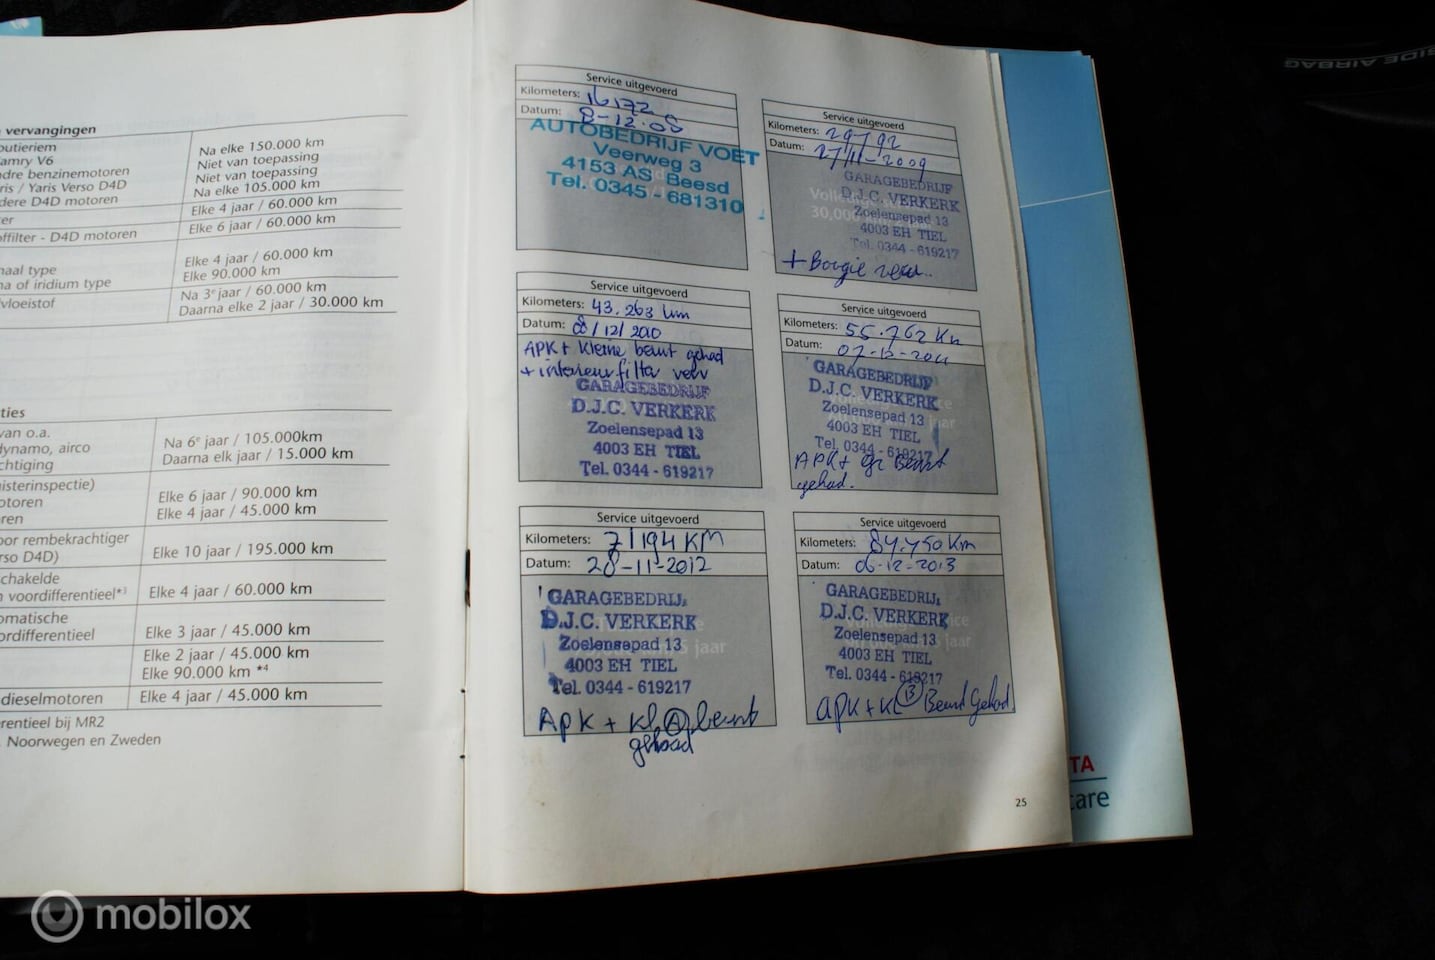 vervangingen
Na elke 150.000 km
Camry V6
Niet van toepassing
andre benzinemotoren
Niet van toepassing
Yaris / Yaris Verso D4D
Na elke 105.000 km
andere D4D motoren
Elke 4 jaar / 60.000 km
offilter - D4D motoren
Elke 6 jaar / 60.000 km
maal type
Elke 4 jaar / 60.000 km
na of iridium type
Elke 90.000 km
vloeistof
Na 3e jaar / 60.000 km
Daarna elke 2 jaar / 30.000 km
ties
van o.a.
Na 6e jaar / 105.000km
dynamo, airco
Daarna elk jaar / 15.000 km
chtiging
nisterinspectie)
Elke 6 jaar / 90.000 km
otoren
Elke 4 jaar / 45.000 km
ren
oor rembekrachtiger
Elke 10 jaar / 195.000 km
rso D4D)
schakelde
n voordifferentieel*3
Elke 4 jaar / 60.000 km
omatische
ordifferentieel
Elke 3 jaar / 45.000 km
Elke 2 jaar / 45.000 km
Elke 90.000 km *4
dieselmotoren
Elke 4 jaar / 45.000 km
erentieel bij MR2
Noorwegen en Zweden
Service uitgevoerd
Kilometers: 16172
Datum: 8-12-08
AUTOBEDRIJF VOET
Veerweg 3
4153 AS Beesd
Tel. 0345 - 681310
Service uitgevoerd
Kilometers: 29792
Datum: 27/11-2009
GARAGEBEDRIJF
D.J.C. VERKERK
Zoelensepad 13
30.000
4003 EH TIEL
Tel. 0344 - 619217
+ Bougie
Service uitgevoerd
Kilometers: 43.263 km
Datum: 08/12/2010
APK + kleine beurt gehad
+ interieurfilter verv
GARAGEBEDRIJF
D.J.C. VERKERK
Zoelensepad 13
4003 EH TIEL
Tel. 0344 - 619217
Service uitgevoerd
Kilometers: 55.762 Km
Datum: 07-12-2011
GARAGEBEDRIJF
D.J.C. VERKERK
Zoelensepad 13
4003 EH TIEL
Tel. 0344 - 619217
APK + gr Beurt
gehad.
Service uitgevoerd
Kilometers: 71194 KM
Datum: 28-11-2012
GARAGEBEDRIJ
D.J.C. VERKERK
Zoelensepad 13
4003 EH TIEL
Tel. 0344 - 619217
APK + kl A beurt
gehad
Service uitgevoerd
Kilometers: 84.750 Km
Datum: 06-12-2013
GARAGEBEDRIJ
D.J.C. VERKERK
Zoelensepad 13
4003 EH TIEL
Tel. 0344 - 619217
APK + KL B Beurt Gehad
25
TA
care
SIDE AIRBAG
mobilox